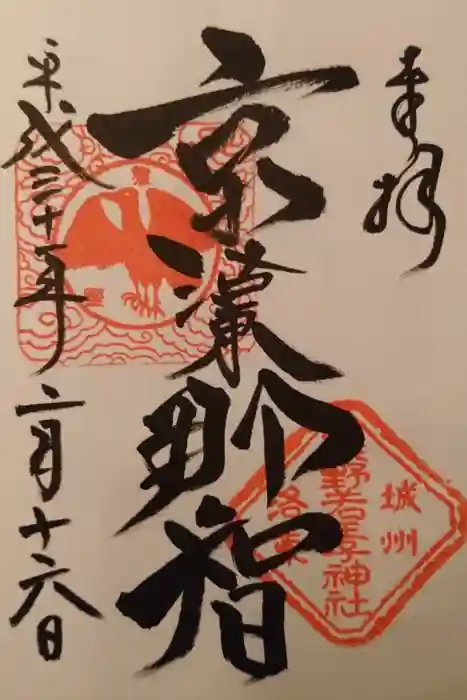 奉拝
京
那智
平成三十一年
二月十六日
城州
野若王子神社
洛東